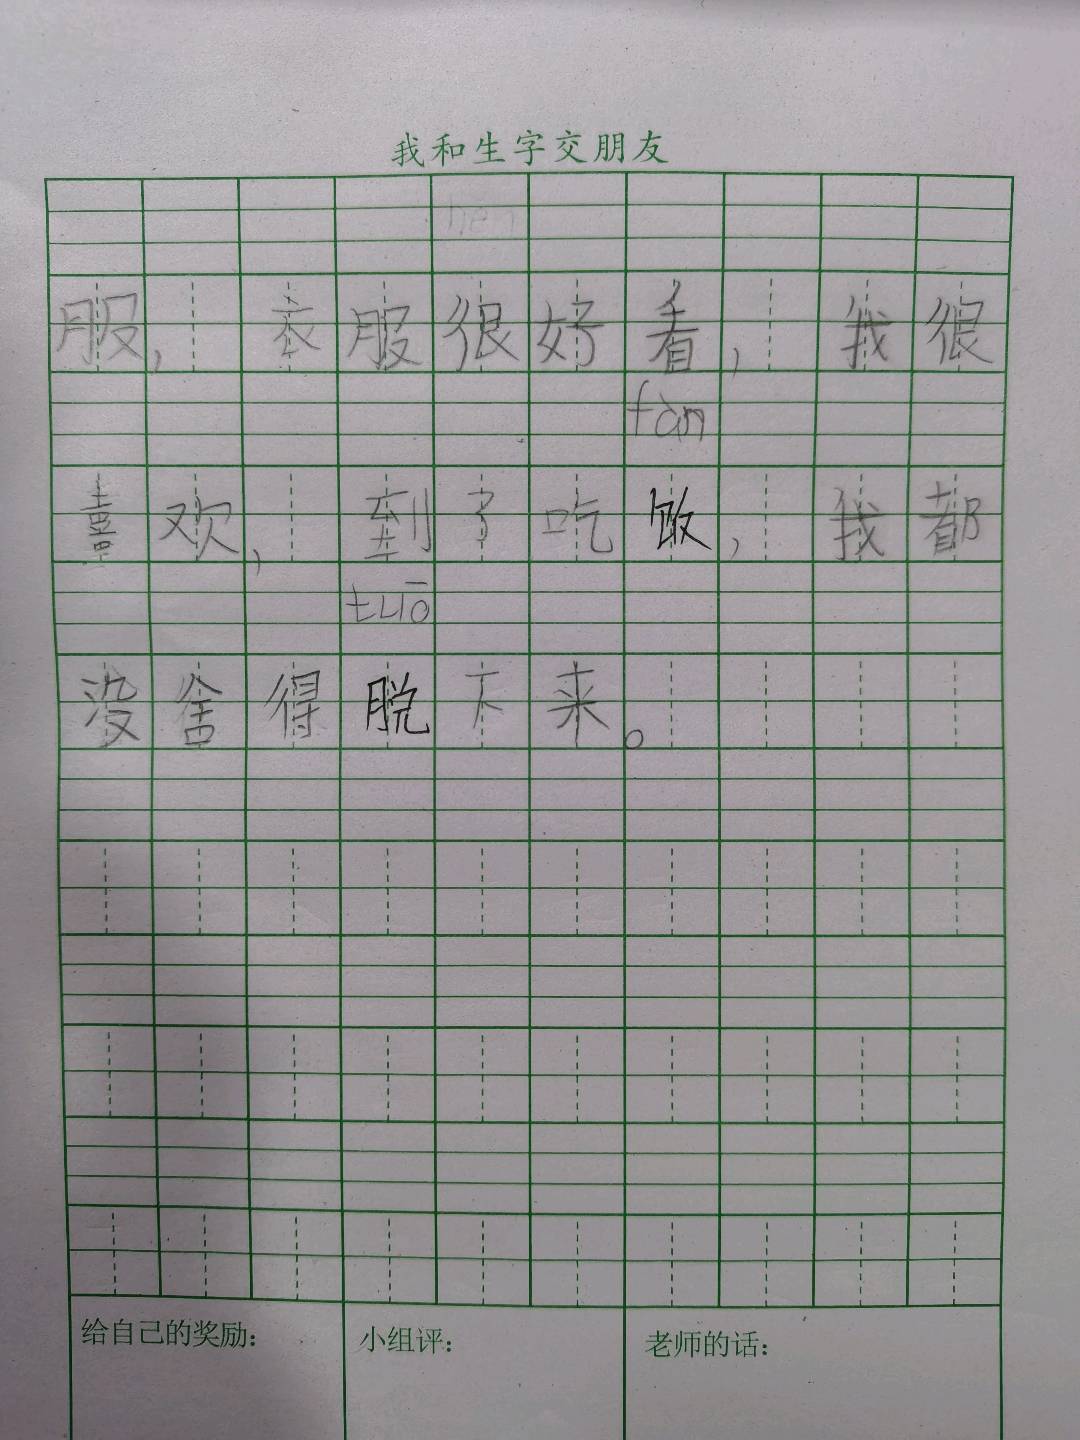 我和生字交朋友
hěn
服，衣服很好看，我很
fàn
喜欢，到了吃饭，我都
tuō
没舍得脱下来。
给自己的奖励：
小组评：
老师的话：